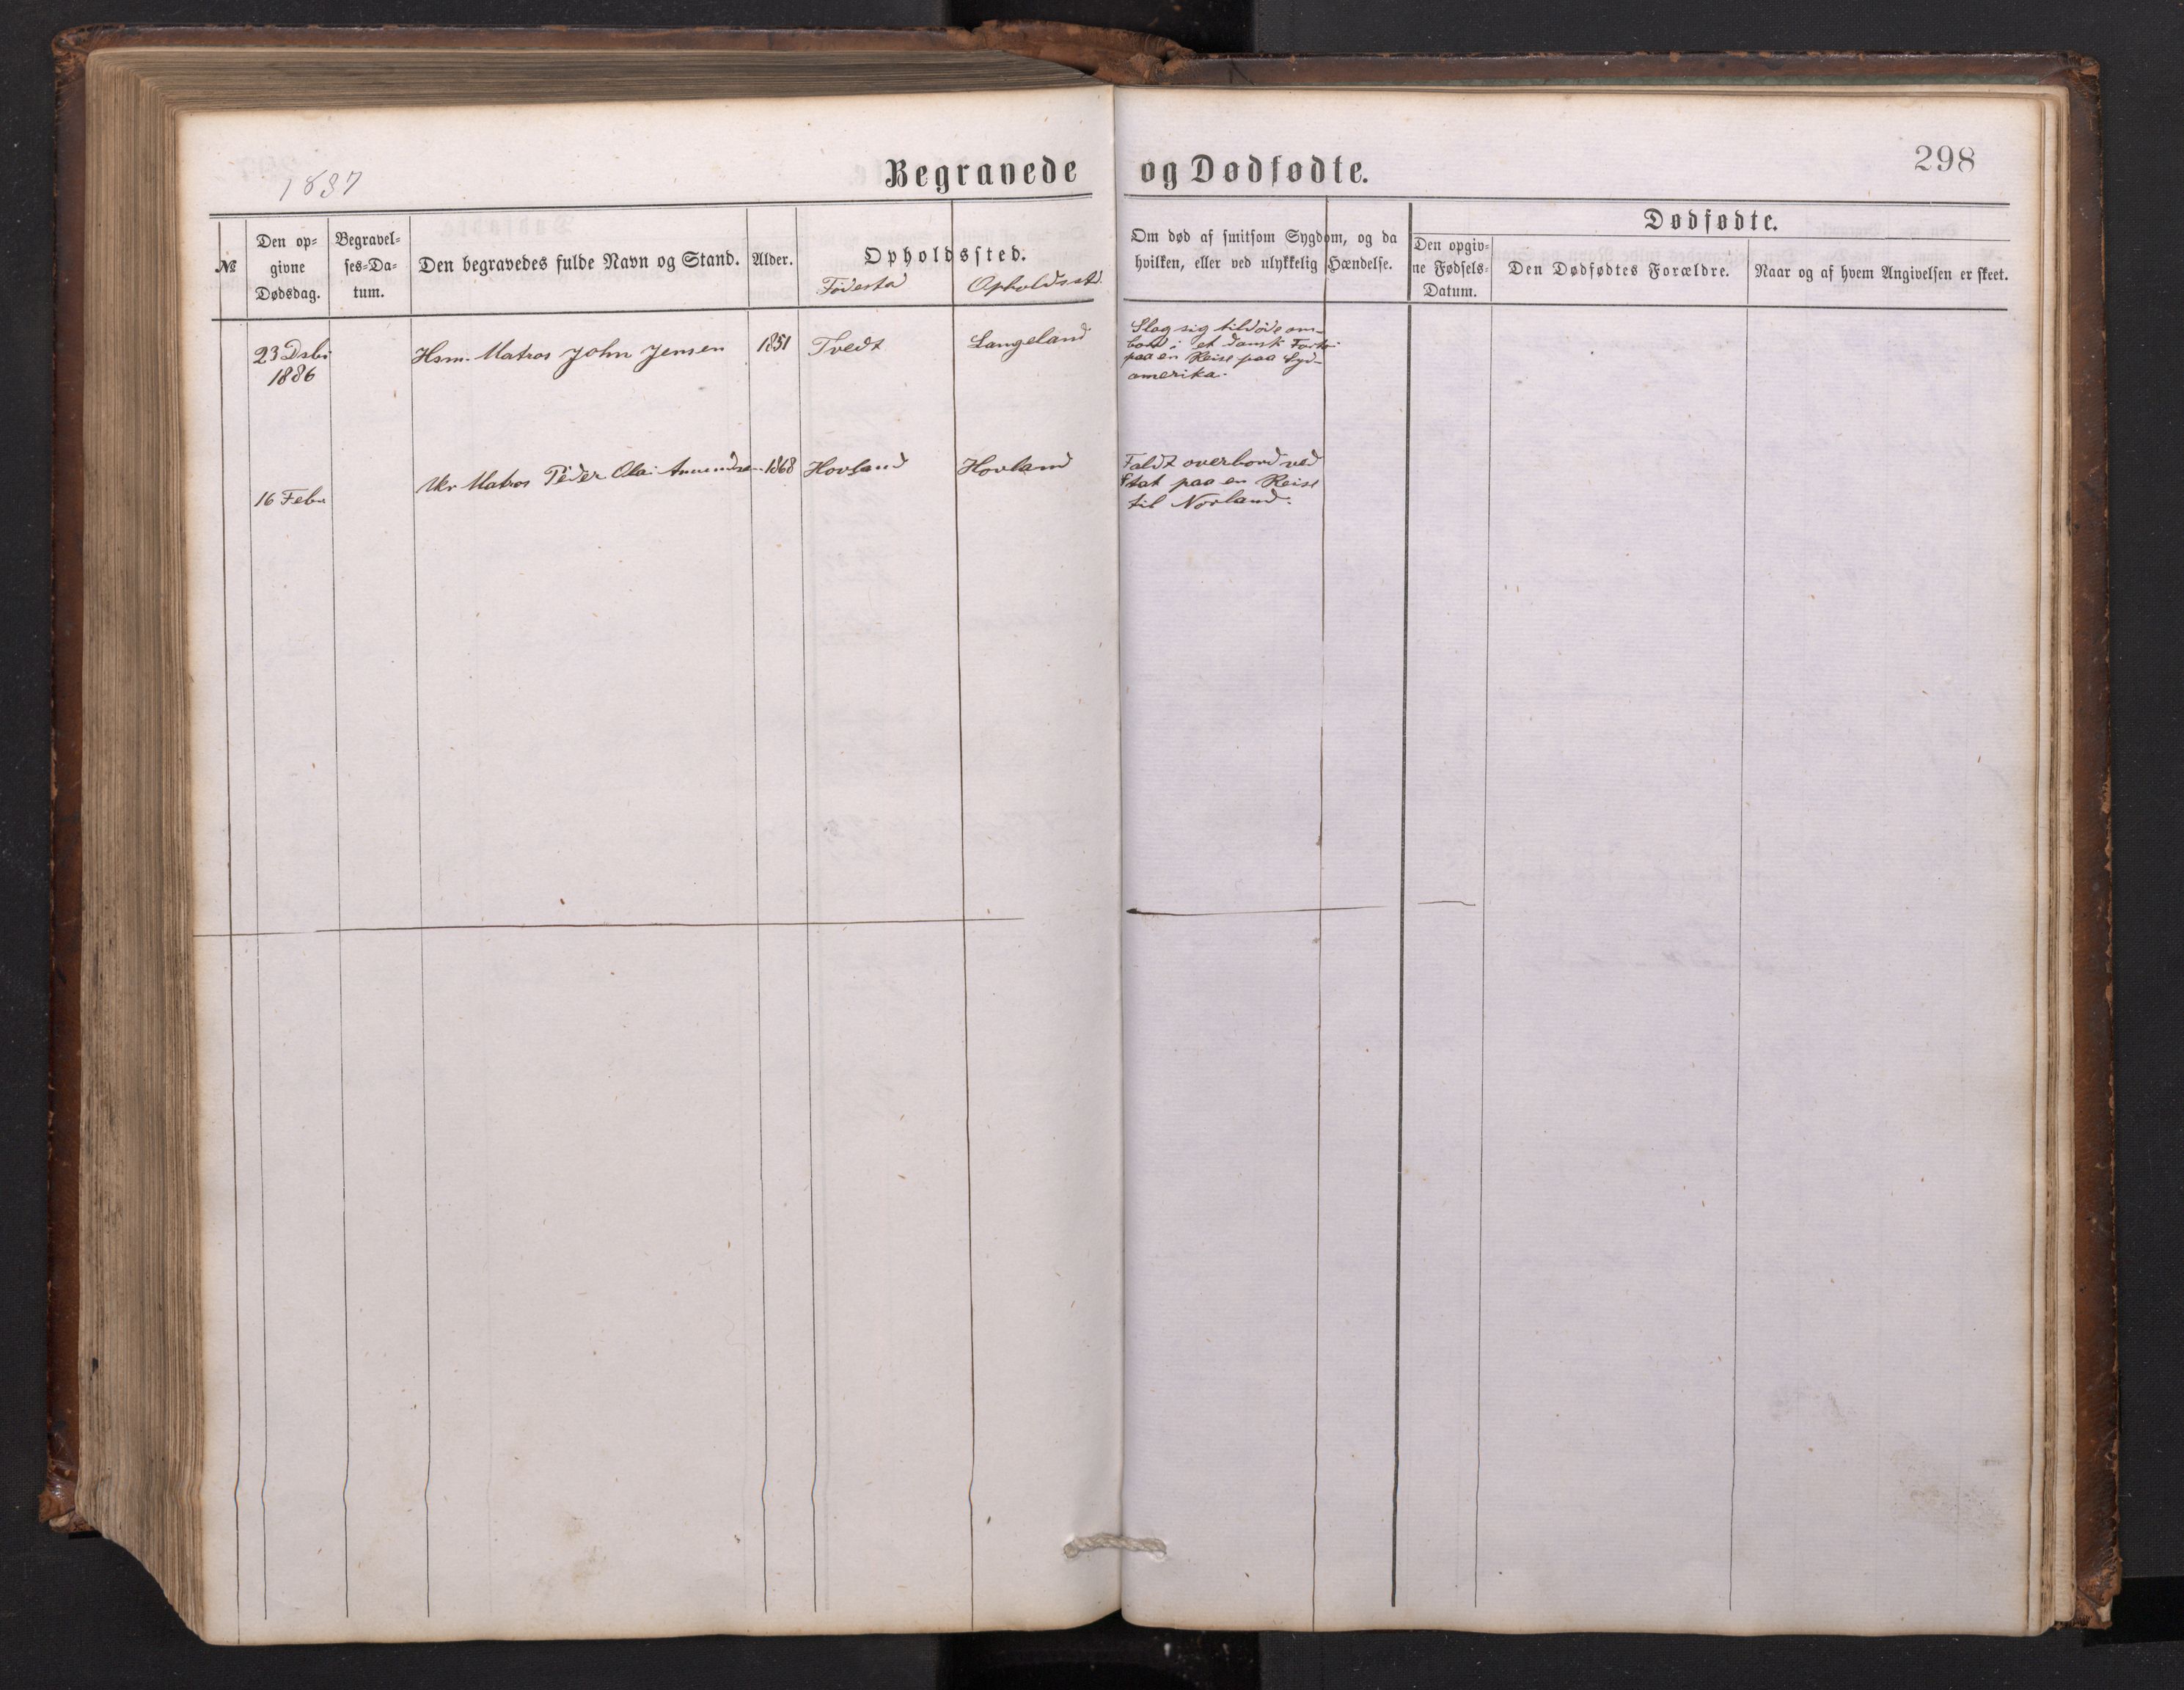 298
1887
Begravede og Dødfødte.
Dødfødte.
№
Den op-
givne
Dødsdag.
Begravel-
ses-Da-
tum.
Den begravedes fulde Navn og Stand.
Alder.
Opholdssted.
Födested
Opholdsstd.
Om død af smitsom Sygdom, og da
hvilken, eller ved ulykkelig Hændelse.
Den opgiv-
ne Fødsels-
Datum.
Den Dødfødtes Forældre.
Naar og af hvem Angivelsen er skeet.
23 Dsbr
1886
Hsm. Matros John Jensen
1851
Tvedt
Langeland
Slog sig tildöde om-
bord i et dansk Fartöi
paa en Reise paa Syd-
amerika.
16 Febr
Ukr Matros Peder Olai Amundsen
1868
Hovland
Hovland
Faldt overbord ved
Stat paa en Reise
til Norland.